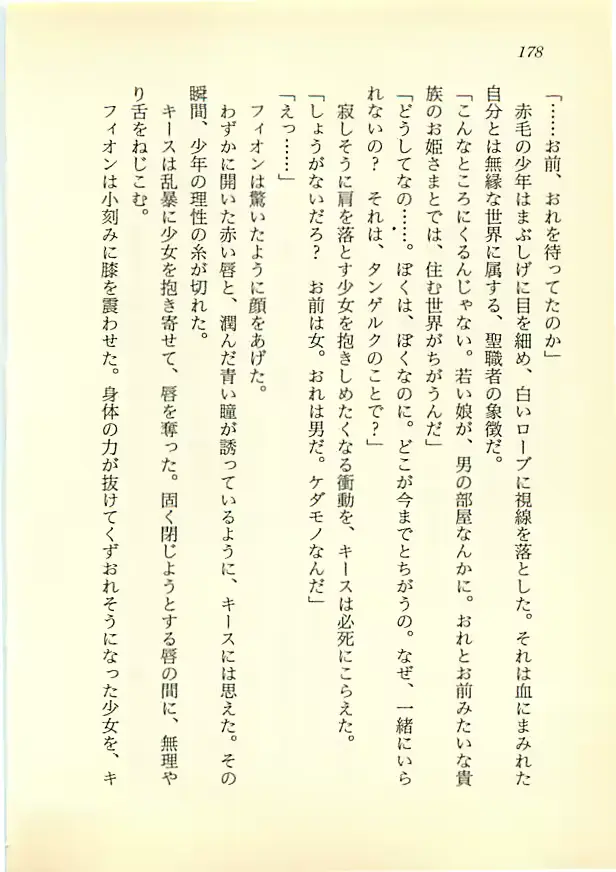 178
「……お前、おれを待ってたのか」
赤毛の少年はまぶしげに目を細め、白いローブに視線を落とした。それは血にまみれた
自分とは無縁な世界に属する、聖職者の象徴だ。
「こんなところにくるんじゃない。若い娘が、男の部屋なんかに。おれとお前みたいな貴
族のお姫さまとでは、住む世界がちがうんだ」
「どうしてなの……。ぼくは、ぼくなのに。どこが今までとちがうの。なぜ、一緒にいら
れないの？　それは、タンゲルクのことで？」
寂しそうに肩を落とす少女を抱きしめたくなる衝動を、キースは必死にこらえた。
「しょうがないだろ？　お前は女。おれは男だ。ケダモノなんだ」
「えっ……」
フィオンは驚いたように顔をあげた。
わずかに開いた赤い唇と、潤んだ青い瞳が誘っているように、キースには思えた。その
瞬間、少年の理性の糸が切れた。
キースは乱暴に少女を抱き寄せて、唇を奪った。固く閉じようとする唇の間に、無理や
り舌をねじこむ。
フィオンは小刻みに膝を震わせた。身体の力が抜けてくずおれそうになった少女を、キ